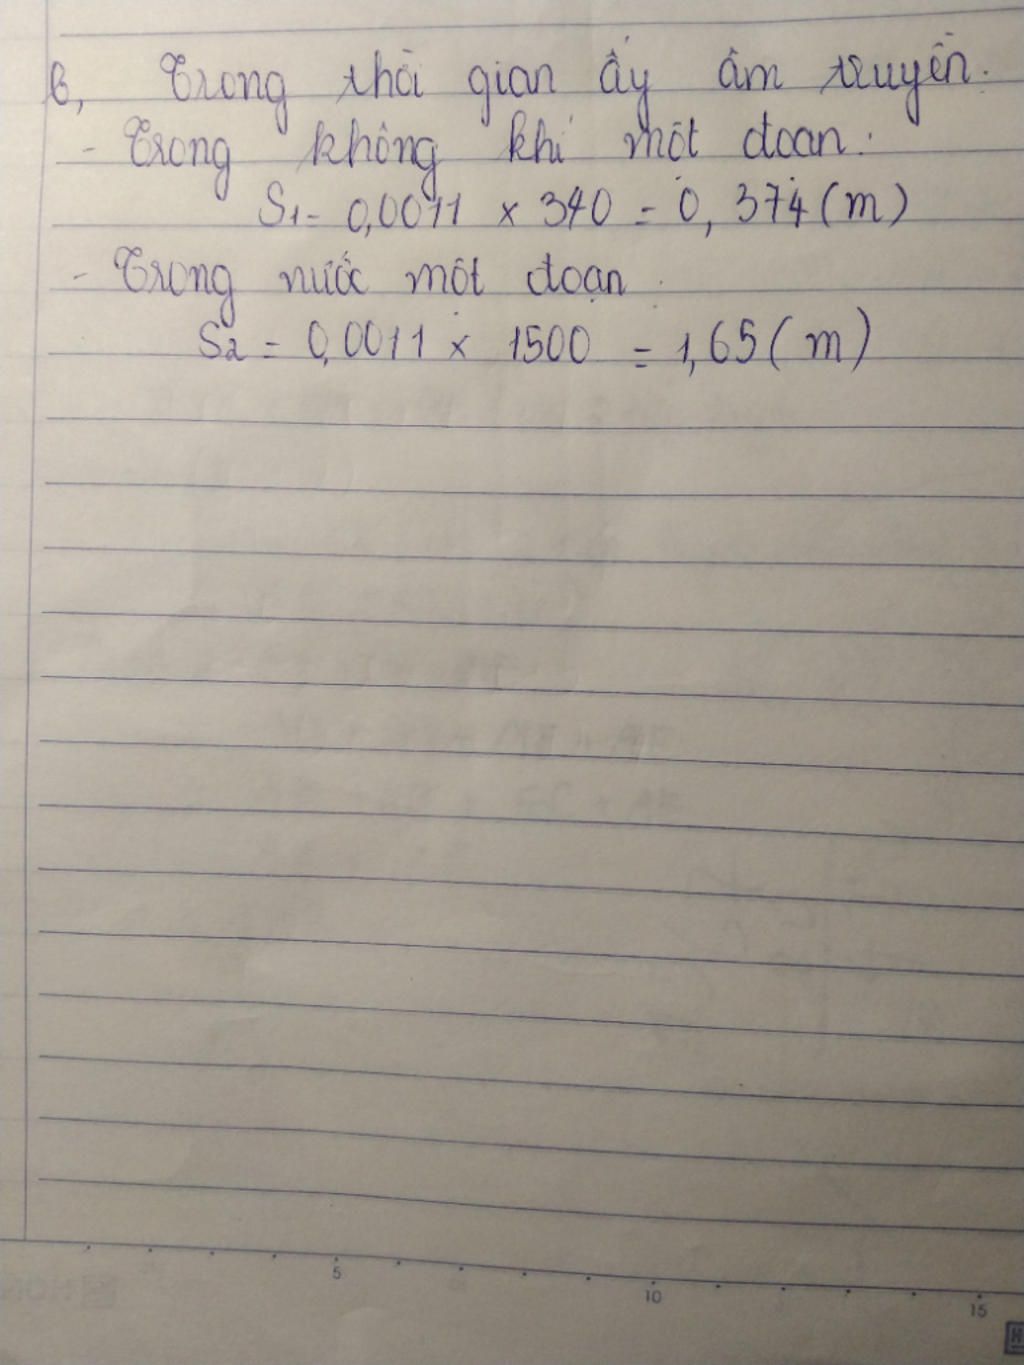 b, Trong thời gian ấy âm truyền.
- Trong không khí một đoạn:
S1 = 0,0011 × 340 = 0,374 (m)
- Trong nước một đoạn
S2 = 0,0011 × 1500 = 1,65 (m)
5 10 15